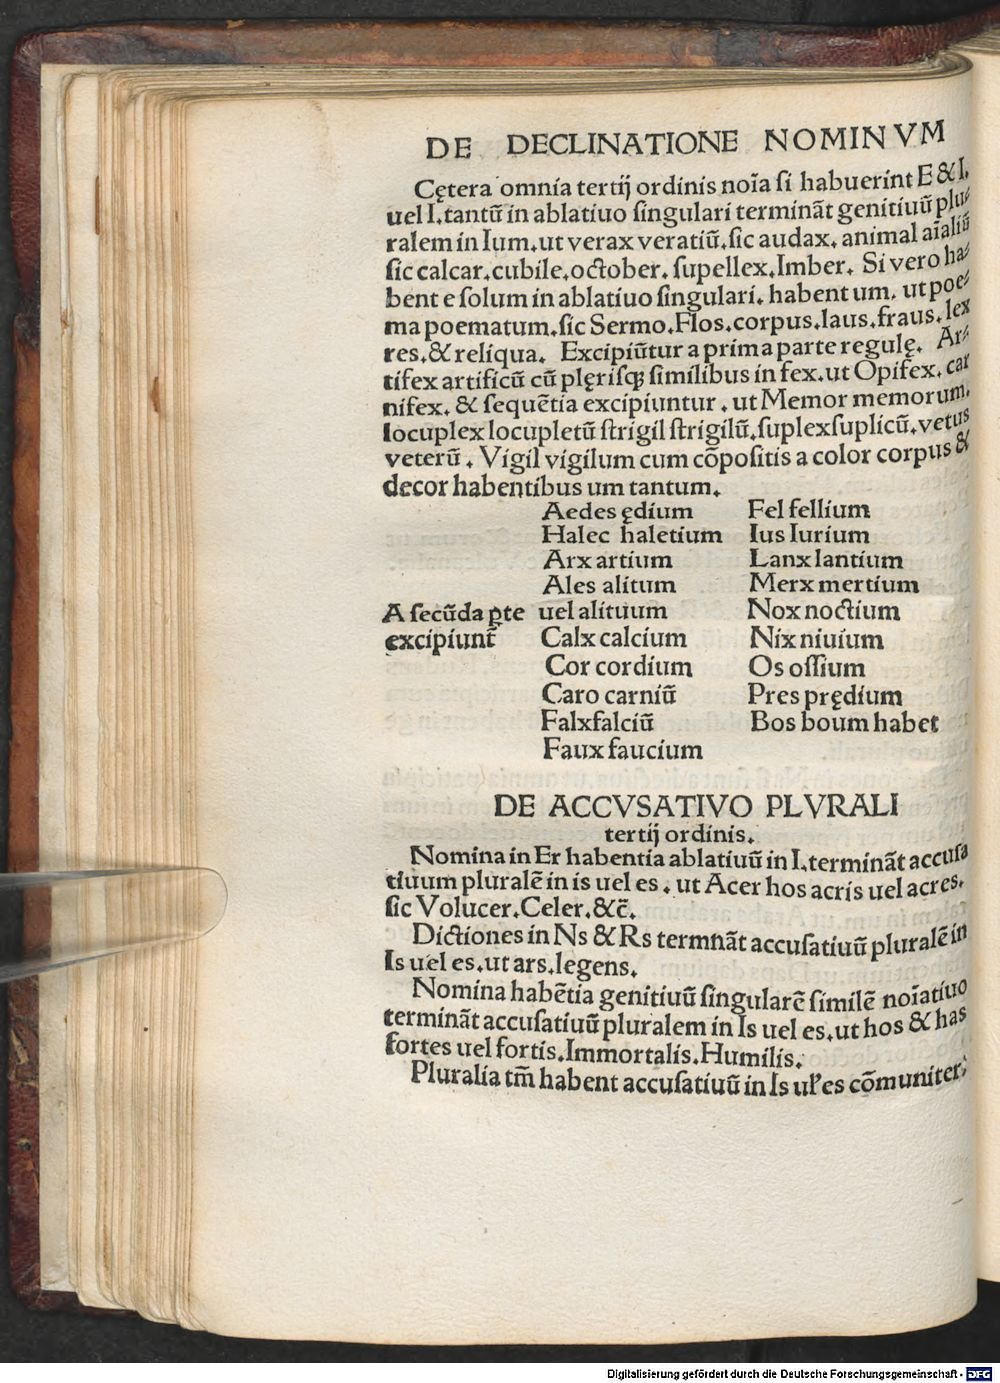 DE DECLINATIONE NOMINVM
Cętera omnia tertij ordinis noĩa si habuerint E & I.
uel I.tantũ in ablatiuo singulari terminãt genitiuũ plu-
ralem in Ium.ut verax veratiũ.sic audax. animal aĩaliũ
sic calcar.cubile.october. supellex.Imber. Si vero ha-
bent e solum in ablatiuo singulari. habent um. ut poe-
ma poematum.sic Sermo.Flos.corpus.laus.fraus.lex
res.& reliqua. Excipiũtur a prima parte regulę. Ar-
tifex artificũ cũ plęrisqꝫ similibus in fex.ut Opifex.car
nifex. & sequẽtia excipiuntur . ut Memor memorum.
locuplex locupletũ strigil strigilũ.suplex suplicũ.vetus
veterũ . Vigil vigilum cum cõpositis a color corpus &
decor habentibus um tantum.
A secũda ꝑte
excipiunt̃
Aedes ędium
Halec haletium
Arx artium
Ales alitum
uel alituum
Calx calcium
Cor cordium
Caro carniũ
Falx falciũ
Faux faucium
Fel fellium
Ius Iurium
Lanx lantium
Merx mertium
Nox noctium
Nix niuium
Os ossium
Pres prędium
Bos boum habet
DE ACCVSATIVO PLVRALI
tertij ordinis.
Nomina in Er habentia ablatiuũ in I.terminãt accusa
tiuum pluralẽ in is uel es . ut Acer hos acris uel acres.
sic Volucer.Celer.&c̃.
Dictiones in Ns & Rs termnãt accusatiuũ pluralẽ in
Is uel es.ut ars.legens.
Nomina habẽtia genitiuũ singularẽ similẽ noĩatiuo
terminãt accusatiuũ pluralem in Is uel es.ut hos & has
fortes uel fortis.Immortalis.Humilis.
Pluralia tm̃ habent accusatiuũ in Is ul̃ es cõmuniter.
Digitalisierung gefördert durch die Deutsche Forschungsgemeinschaft - DFG